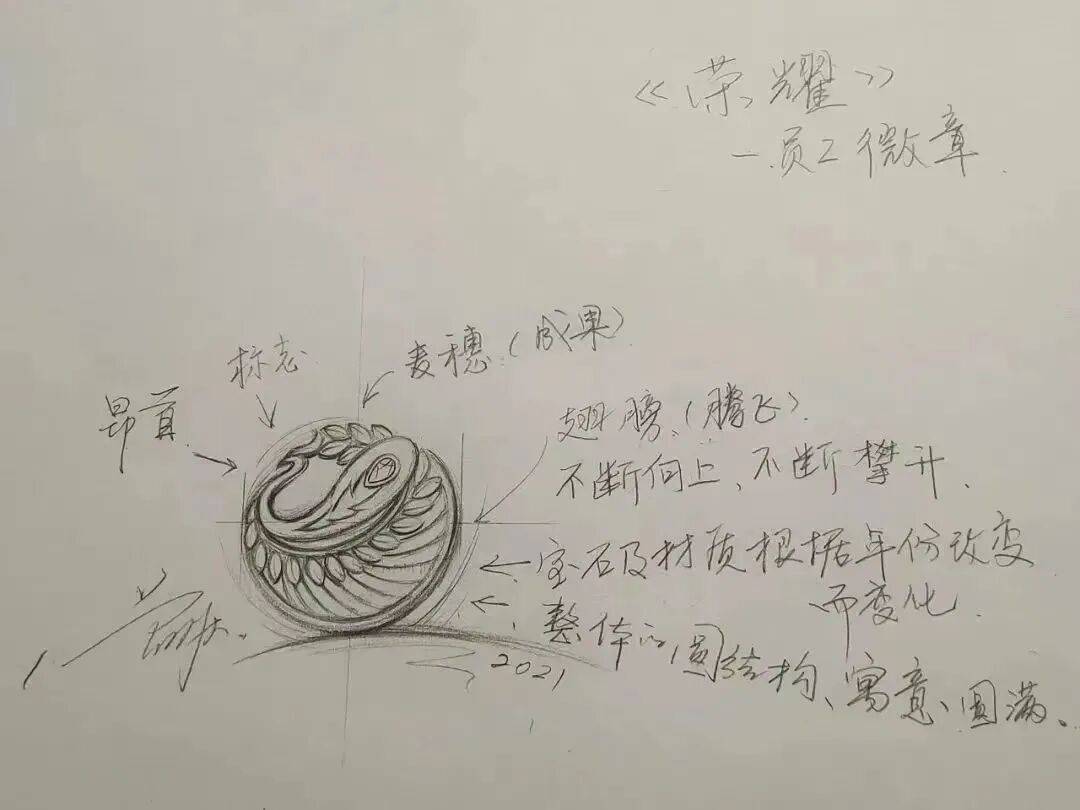 《荣耀》
一员工微章.
标志
麦穗.(成果)
昂首
翅膀.(腾飞).
不断向上、不断攀升.
宝石及材质根据年份改变
而变化.
整体的圆结构、寓意、圆满、
2021